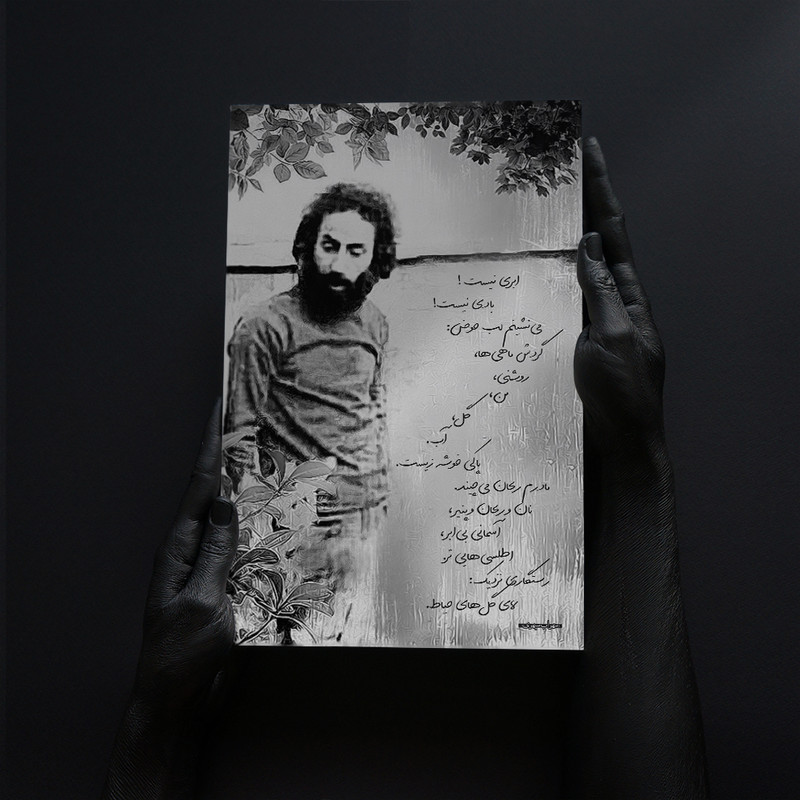 ابری نیست!
بادی نیست!
می‌نشینم لب حوض:
گردش ماهی‌ها،
روشنی،
من،
گل،
آب.
پاکی خوشه زیست.
مادرم ریحان می‌چیند.
نان و ریحان و پنیر،
آسمانی بی‌ابر،
اطلسی‌هایی تر
رستگاری نزدیک:
لای گل‌های حیاط.